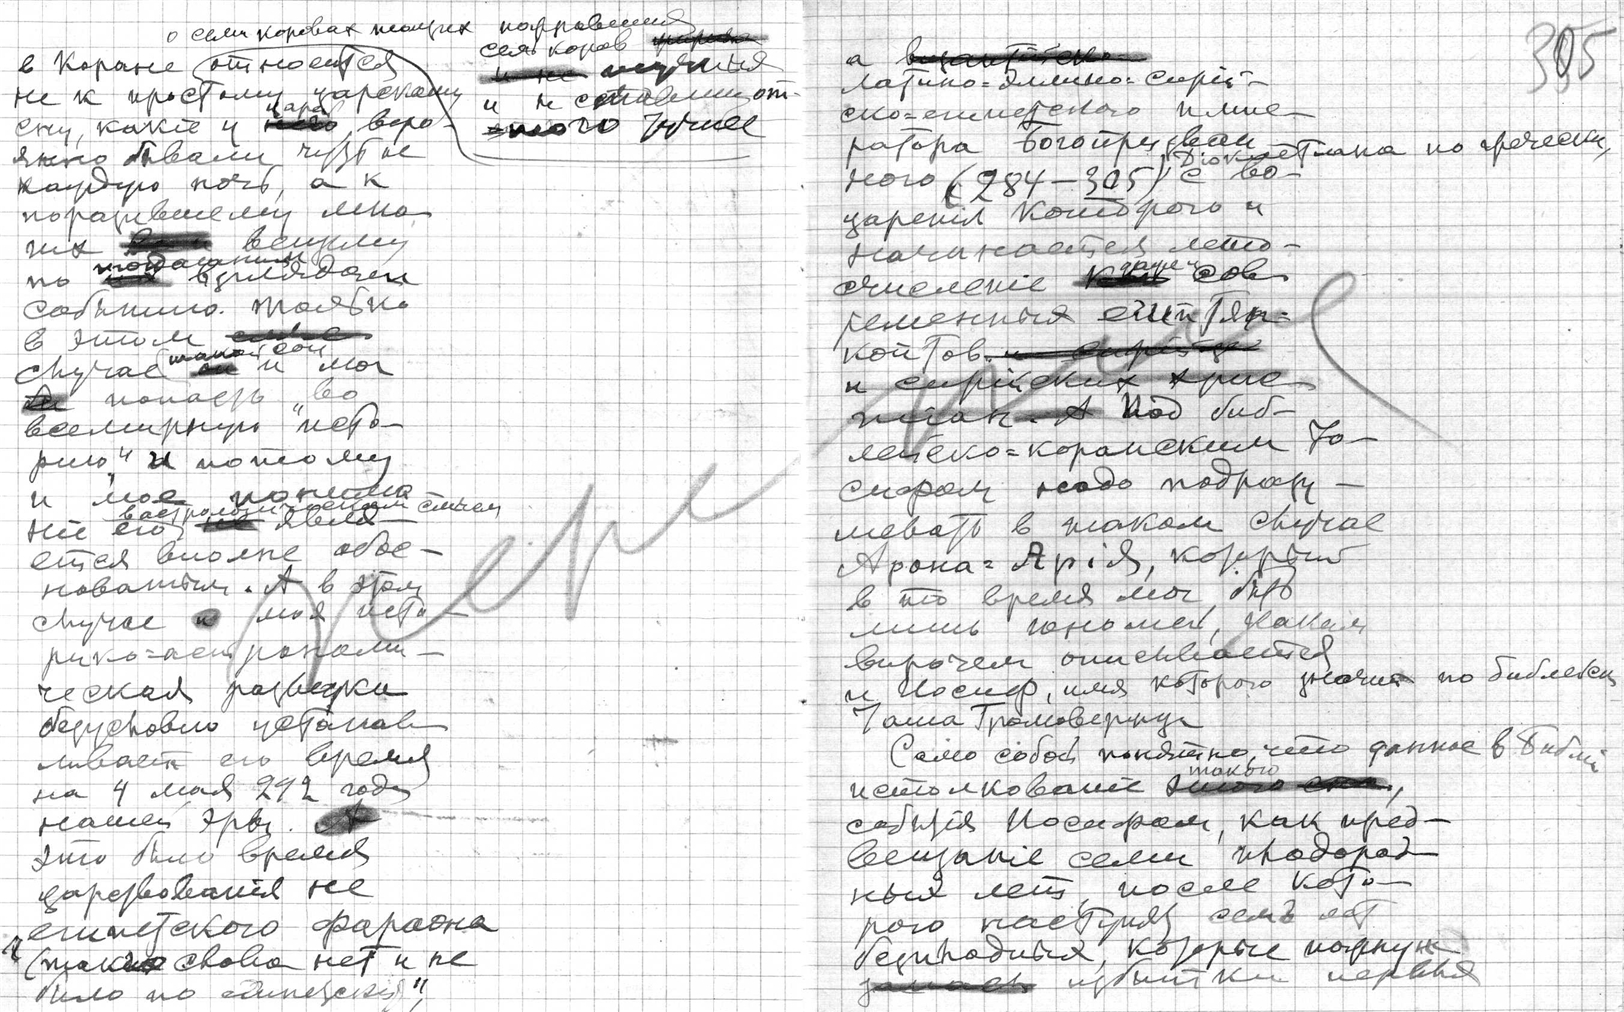 о семи коровах тощих пожравших
семь коров
в Коране относится
не к простому царскому
сну, какие у царя веро-
ятно бывали чуть не
каждую ночь, а к
поразившему мно-
гих вещему
по тогдашним взглядам
событию. Только
в этом
случае такой сон и мог
попасть "во
всемирную исто-
рию" и потому
и мое понима
ние его в астрологическом смысле явля-
ется вполне обос-
нованным. А в этом
случае и моя исто-
рико=астрономи-
ческая разведка
безусловно устанав-
ливает его время
на 4 мая 292 года
нашей эры.
это было время
царствования не
египетского фараона
(такого слова нет и не
было по египетски",
305
а
латино=эллино=сирий-
ско=египетского импе-
ратора Богопризван
ного (284—305) Диоклетиана по гречески, с во-
царения которого и
начинается лето-
счисление сов
ременных египтян=
коптов
и сирийских хрис
тиан. А под биб-
лейско=коранским Ио-
сифом надо подразу-
мевать в таком случае
Арона=Ария, который
в то время мог быть
лишь юношей, каким
впрочем описывается
и Иосиф, имя которого значит по библейски
Чаша Громовержца
Само собой понятно, что данное в Библии
истолкование такого
события Иосифом, как пред-
вещание семи плодород-
ных лет, после кото-
рого наступят семь лет
безплодных, которые
избытки первых